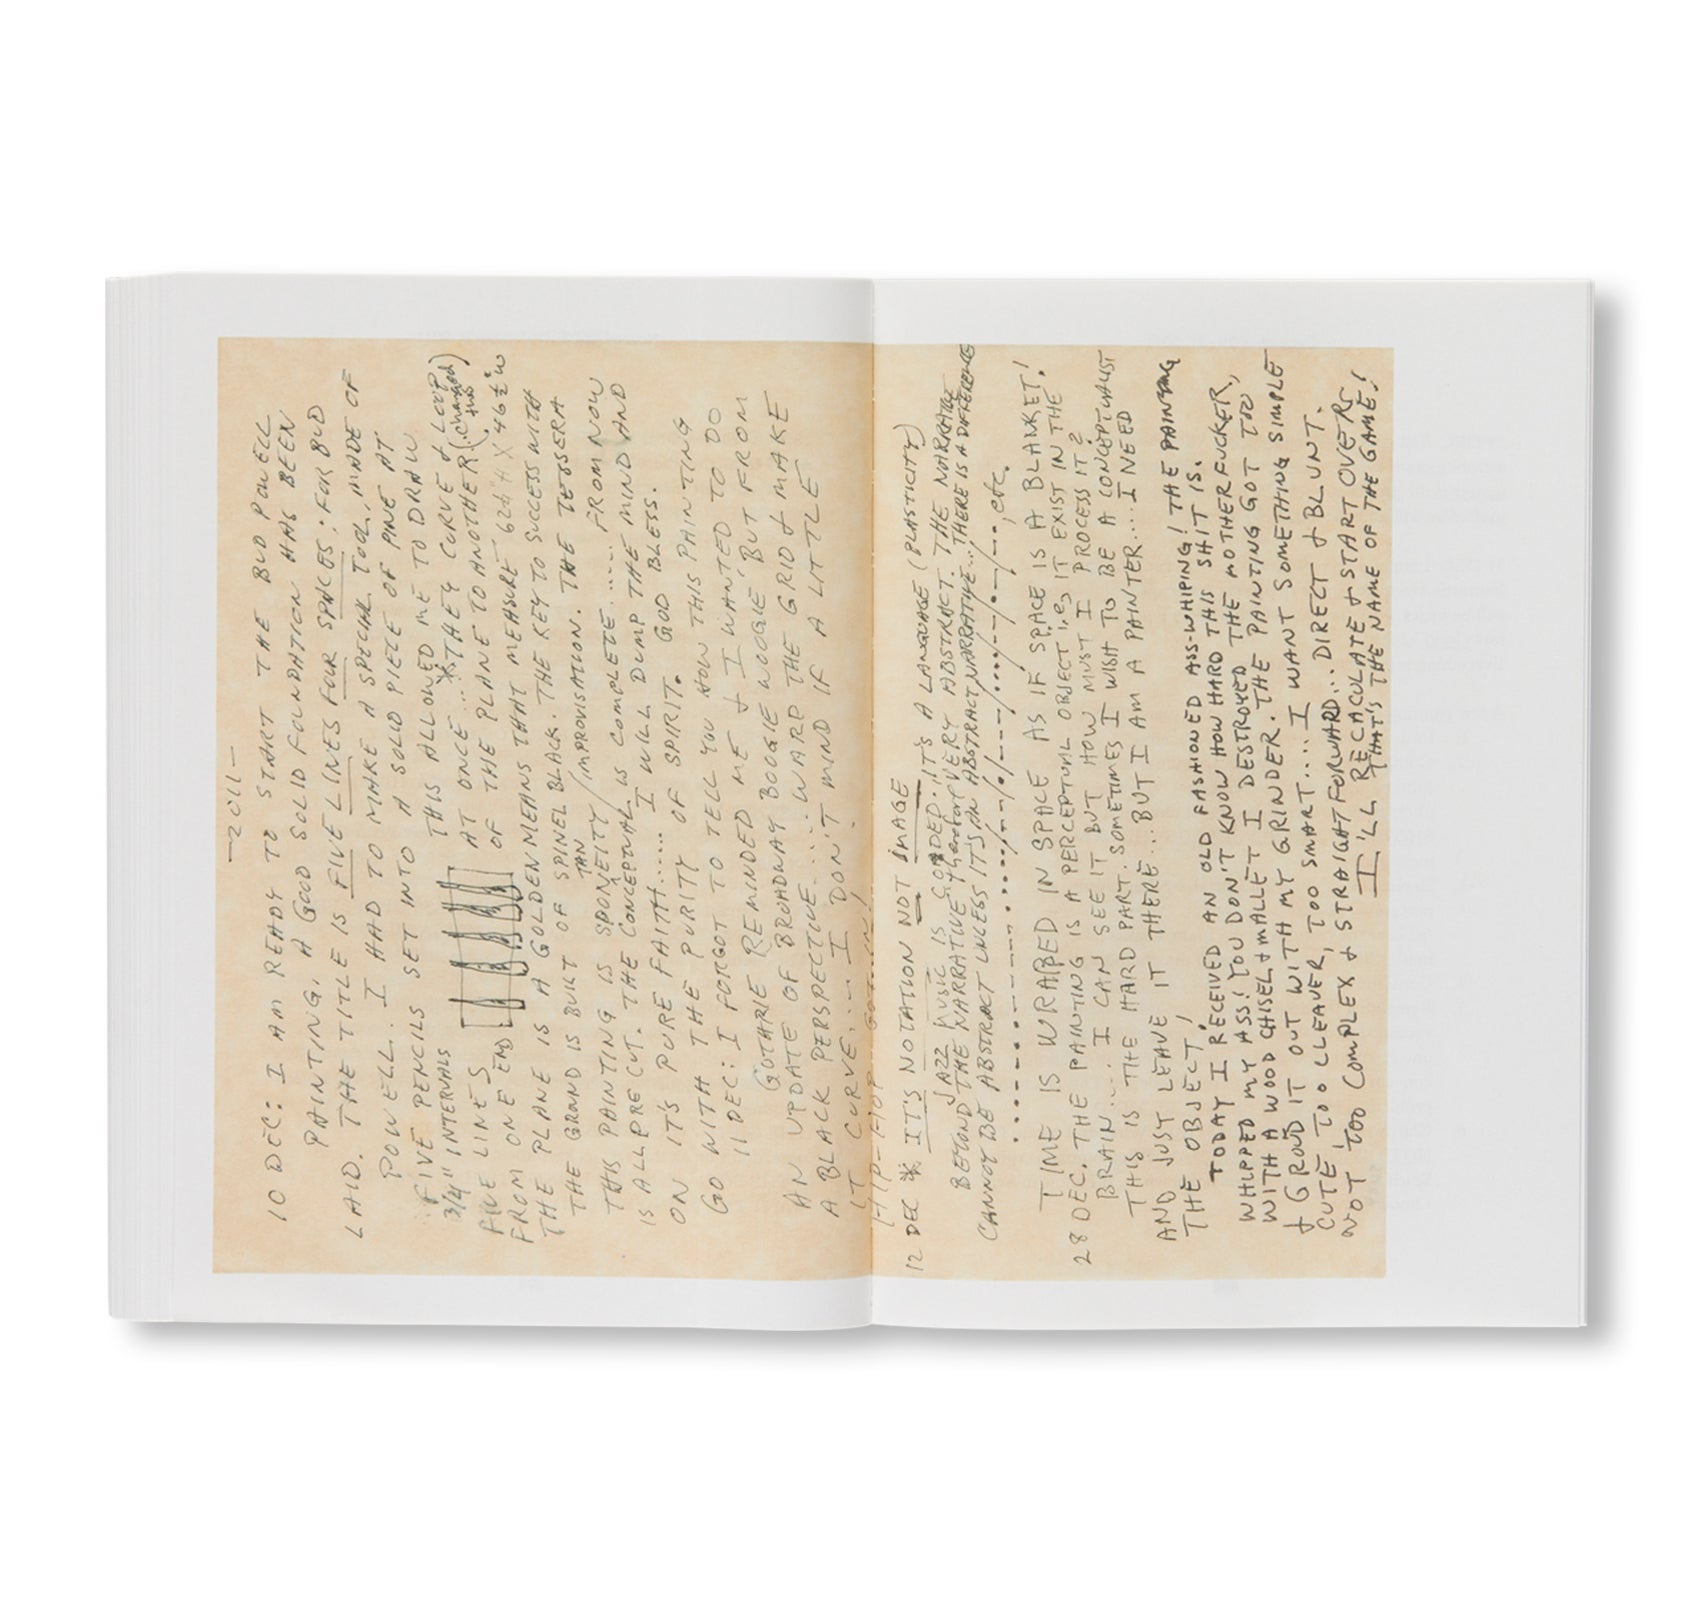 —2011—
10 DEC: I AM READY TO START THE BUD POWELL
PAINTING. A GOOD SOLID FOUNDATION HAS BEEN
LAID. THE TITLE IS FIVE LINES FOUR SPACES: FOR BUD
POWELL. I HAD TO MAKE A SPECIAL TOOL, MADE OF
FIVE PENCILS SET INTO A SOLID PIECE OF PINE AT
3/4" INTERVALS THIS ALLOWED ME TO DRAW
FIVE LINES AT ONCE... *THEY CURVE & LOOP
FROM ONE END OF THE PLANE TO ANOTHER (changed this)
THE PLANE IS A GOLDEN MEANS THAT MEASURE 62½"H X 46½"W
THE GROUND IS BUILT OF SPINEL BLACK. THE KEY TO SUCCESS WITH
THIS PAINTING IS SPONTANEITY/IMPROVISATION. THE TESSERA
IS ALL PRE CUT. THE CONCEPTUAL IS COMPLETE..... FROM NOW
ON IT'S PURE FAITH..... I WILL DUMP THE MIND AND
GO WITH THE PURITY OF SPIRIT. GOD BLESS.
11 DEC: I FORGOT TO TELL YOU HOW THIS PAINTING
GUTHRIE REMINDED ME & I WANTED TO DO
AN UPDATE OF BROADWAY BOOGIE WOOGIE, BUT FROM
A BLACK PERSPECTIVE..... WARP THE GRID & MAKE
IT CURVE.... I DON'T MIND IF A LITTLE
HIP-HOP GOT IN!
12 DEC * IT'S NOTATION NOT IMAGE
JAZZ MUSIC IS CODED. IT'S A LANGUAGE (PLASTICITY)
BEYOND THE NARRATIVE therefore VERY ABSTRACT. THE NARRATIVE
CANNOT BE ABSTRACT UNLESS IT'S AN ABSTRACT NARRATIVE... THERE IS A DIFFERENCE
, etc.
TIME IS WRAPPED IN SPACE AS IF SPACE IS A BLANKET!
28 DEC. THE PAINTING IS A PERCEPTUAL OBJECT i.e., IT EXIST IN THE
BRAIN.... I CAN SEE IT BUT HOW MUST I PROCESS IT?
THIS IS THE HARD PART. SOMETIMES I WISH TO BE A CONCEPTUALIST
AND JUST LEAVE IT THERE... BUT I AM A PAINTER... I NEED
THE OBJECT!
TODAY I RECEIVED AN OLD FASHIONED ASS-WHIPING! THE PAINTING
WHIPPED MY ASS! YOU DON'T KNOW HOW HARD THIS SHIT IS.
WITH A WOOD CHISEL & MALLET I DESTROYED THE MOTHERFUCKER,
& GROUND IT OUT WITH MY GRINDER. THE PAINTING GOT TOO
CUTE, TOO CLEAVER, TOO SMART.... I WANT SOMETHING SIMPLE
NOT TOO COMPLEX & STRAIGHT FORWARD... DIRECT & BLUNT.
I'LL RECACULATE & START OVER,
THAT'S THE NAME OF THE GAME!